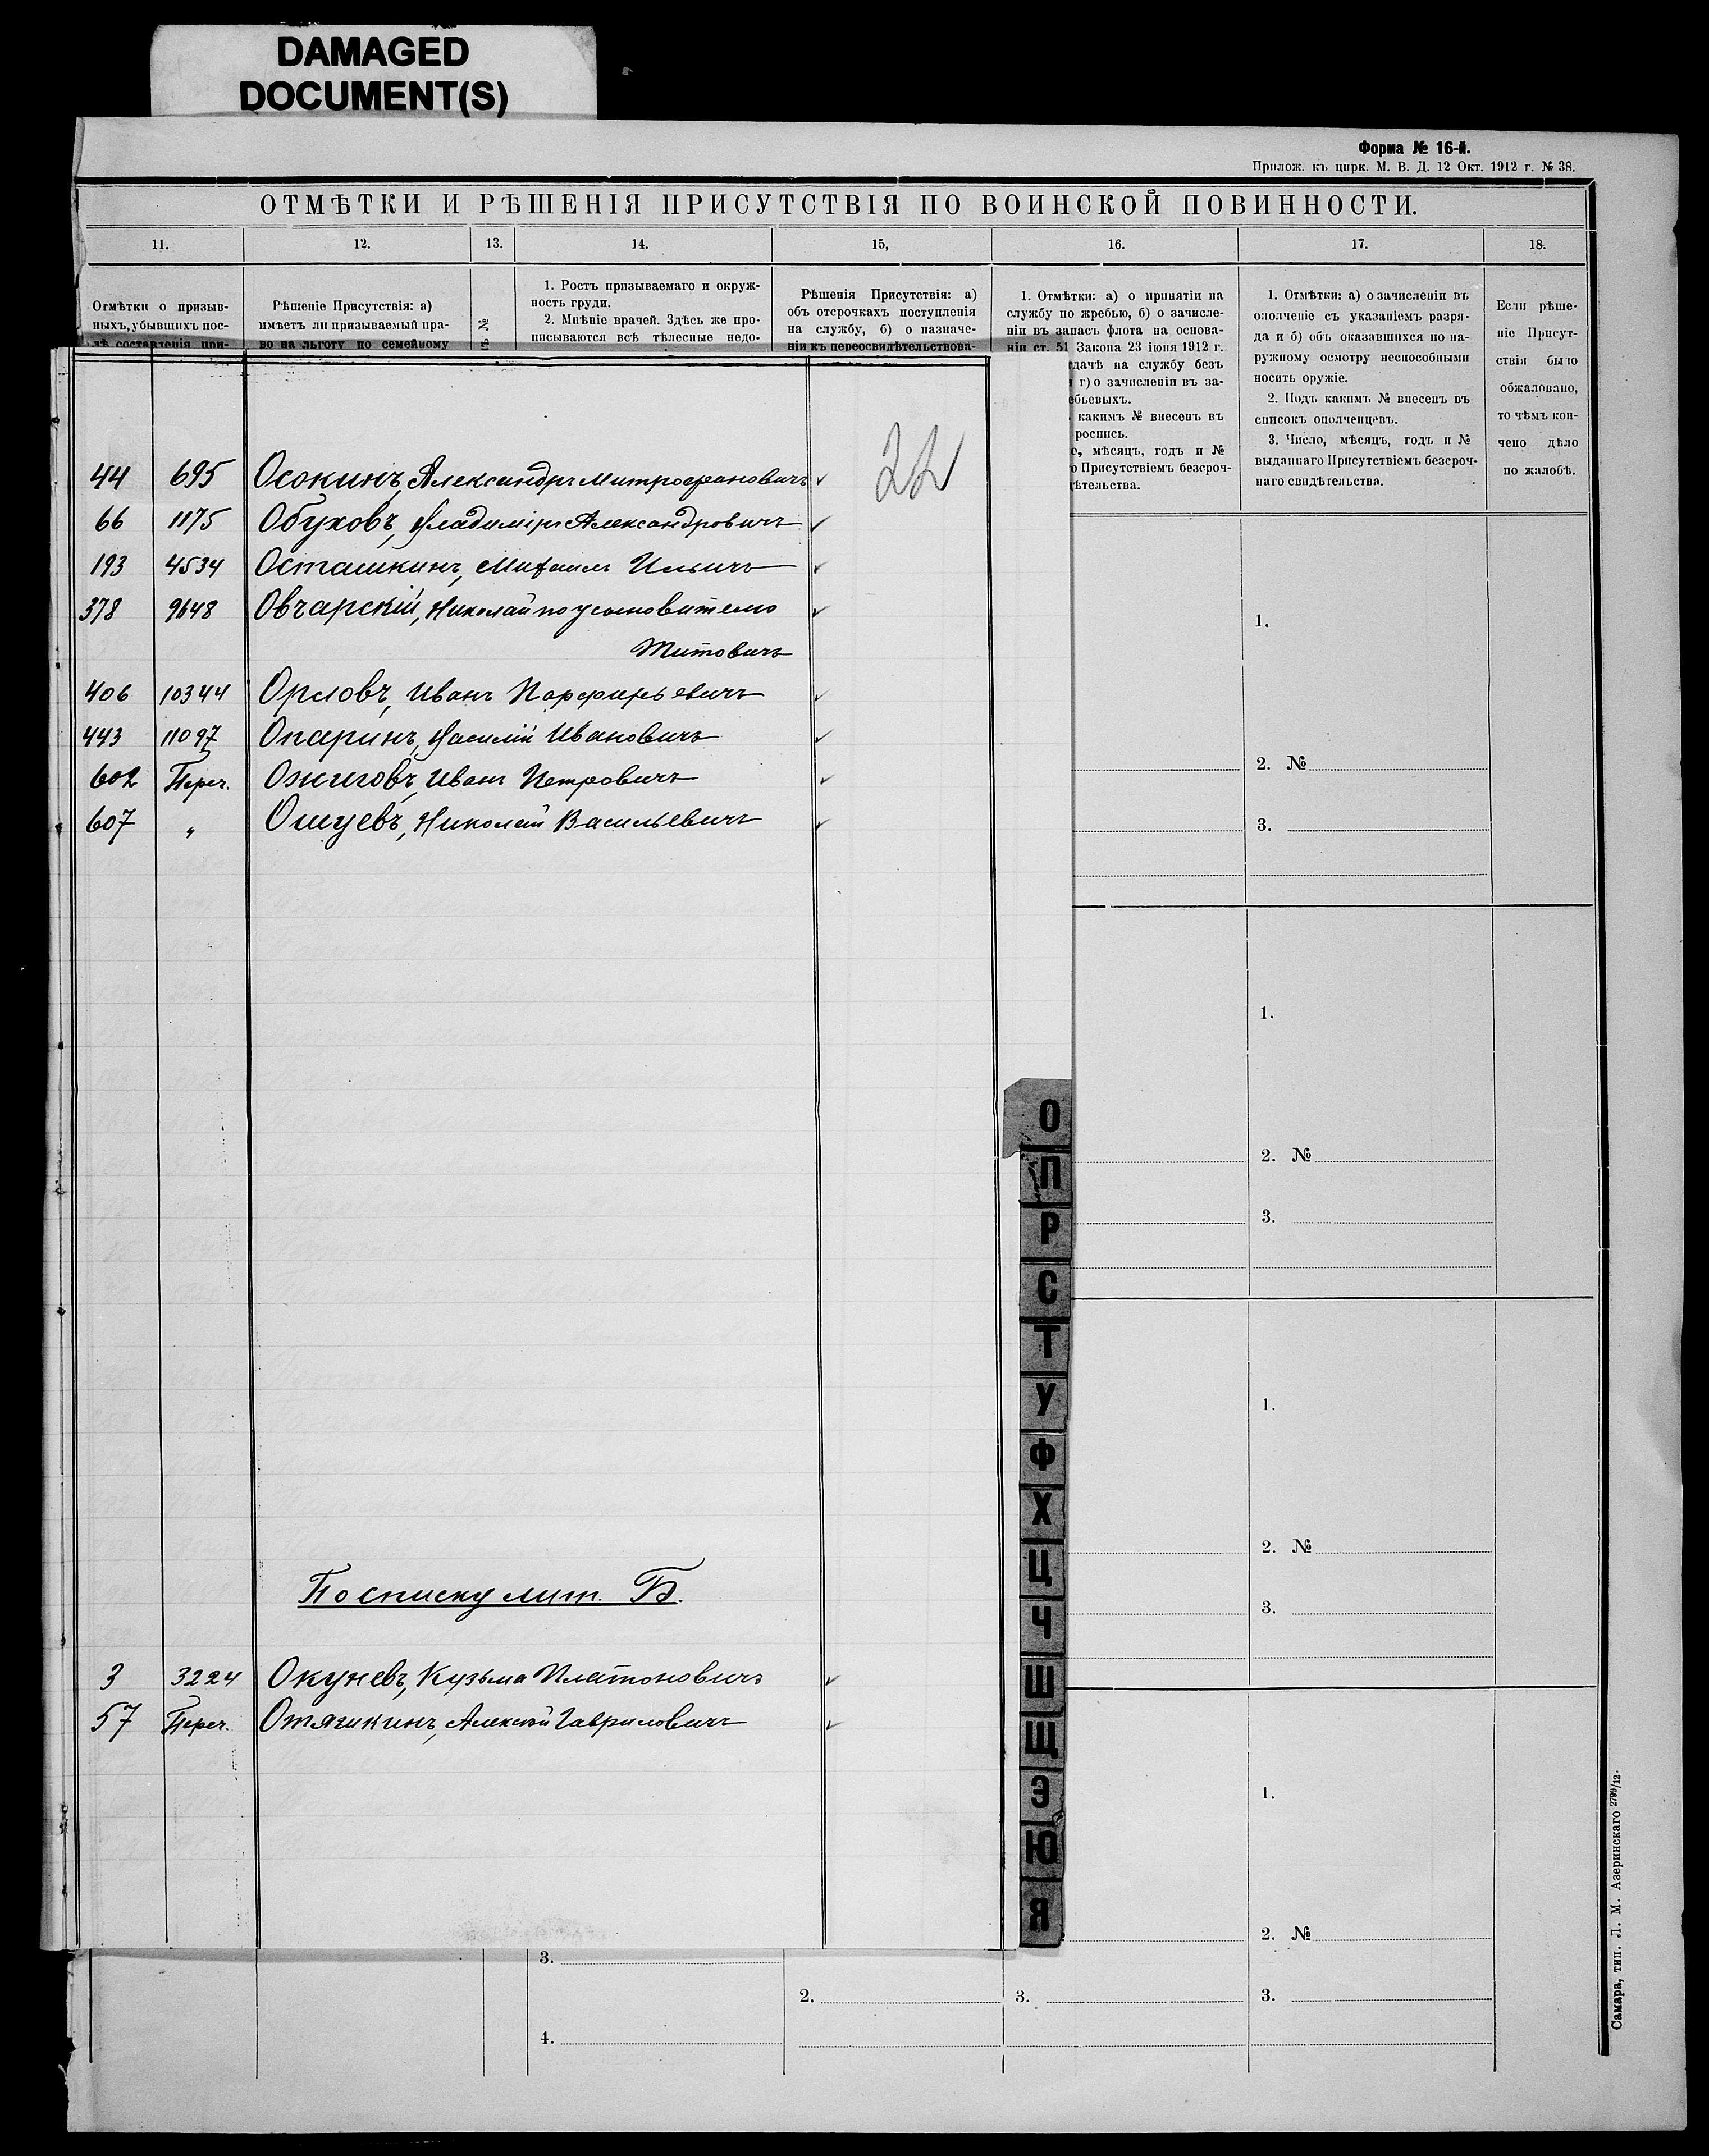 DAMAGED
DOCUMENT(S)
Форма № 16-й.
Прилож. къ цирк. М. В. Д. 12 Окт. 1912 г. № 38.
ОТМѢТКИ И РѢШЕНІЯ ПРИСУТСТВІЯ ПО ВОИНСКОЙ ПОВИННОСТИ.
11. 12. 13. 14. 15, 16. 17. 18.
Отмѣтки о призыв-
ныхъ, убывшихъ пос-
лѣ составленія при-
Рѣшеніе Присутствія: а)
имѣетъ ли призываемый пра-
во на льготу по семейному
№
1. Ростъ призываемаго и окруж-
ность груди.
2. Мнѣніе врачей. Здѣсь же про-
писываются всѣ тѣлесные недо-
Рѣшенія Присутствія: а)
объ отсрочкахъ поступленія
на службу, б) о назначе-
ніи къ переосвидѣтельствова-
1. Отмѣтки: а) о принятіи на
службу по жребью, б) о зачисле-
ніи въ запасъ флота на основа-
ніи ст. 51 Закона 23 іюня 1912 г.
дачѣ на службу безъ
г) о зачисленіи въ за-
бьевыхъ.
какимъ № внесенъ въ
роспись.
о, мѣсяцъ, годъ и №
Присутствіемъ безсроч-
дѣтельства.
1. Отмѣтки: а) о зачисленіи въ
ополченіе съ указаніемъ разря-
да и б) объ оказавшихся по на-
ружному осмотру неспособными
носить оружіе.
2. Подъ какимъ № внесенъ въ
списокъ ополченцевъ.
3. Число, мѣсяцъ, годъ и №
выданнаго Присутствіемъ безсроч-
наго свидѣтельства.
Если рѣше-
ніе Присут-
ствія было
обжаловано,
то чѣмъ кон-
чено дѣло
по жалобѣ.
22
44 695 Осокинъ, Александръ Митрофановичъ
66 1175 Обуховъ, Владиміръ Александровичъ
193 4534 Осташкинъ, Михаилъ Ильичъ
378 9648 Овчарскій, Николай по усыновителю
Титовичъ
406 10344 Орловъ, Иванъ Порфирьевичъ
443 11097 Опаринъ, Василій Ивановичъ
602 Переч. Ожиговъ, Иванъ Петровичъ
607 " Ошуевъ, Николай Васильевичъ
По списку лит. Б.
3 3224 Окуневъ, Кузьма Платоновичъ
57 Переч. Отяшкинъ, Алексѣй Гавриловичъ
О
П
Р
С
Т
У
Ф
Х
Ц
Ч
Ш
Щ
Э
Ю
Я
1.
2. №
3.
1.
2. №
3.
1.
2. №
3.
1.
2. №
3.
3.
4.
2.
3.
Самара, тип. Л. М. Азеринскаго 2799/12.